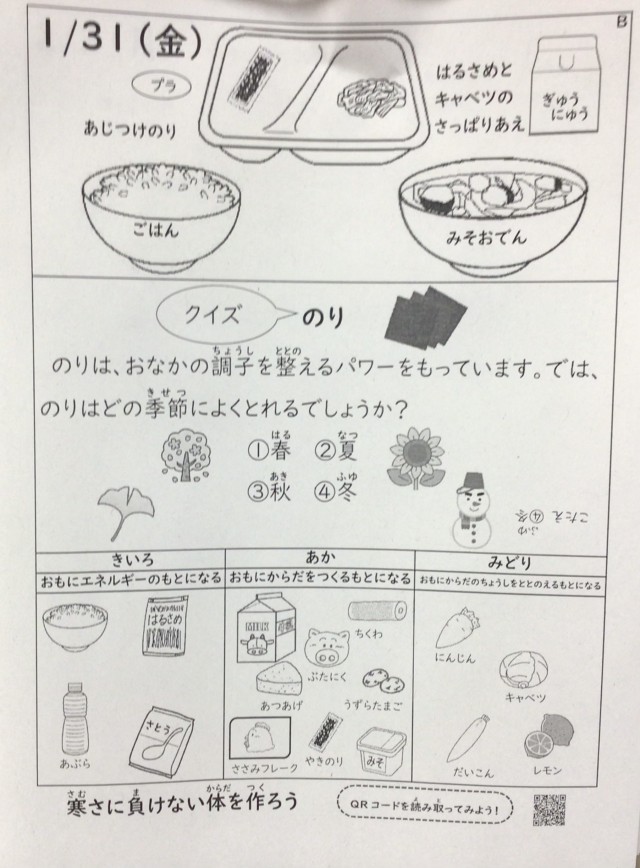 B
1/31(金)
プラ
あじつけのり
はるさめと
キャベツの
さっぱりあえ
ぎゅう
にゅう
ごはん
みそおでん
クイズ
のり
のりは、おなかの調子を整えるパワーをもっています。では、
ちょうし
ととの
のりはどの季節によくとれるでしょうか?
きせつ
①春 ②夏
はる
なつ
③秋 ④冬
あき
ふゆ
こたえ ④冬
ふゆ
きいろ
おもにエネルギーのもとになる
はるさめ
あぶら
さとう
あか
おもにからだをつくるもとになる
MILK
ちくわ
ぶたにく
あつあげ
うずらたまご
ささみフレーク
やきのり
みそ
みどり
おもにからだのちょうしをととのえるもとになる
にんじん
キャベツ
だいこん
レモン
寒さに負けない体を作ろう
さむ
ま
からだ
つく
QRコードを読み取ってみよう!
よ
と